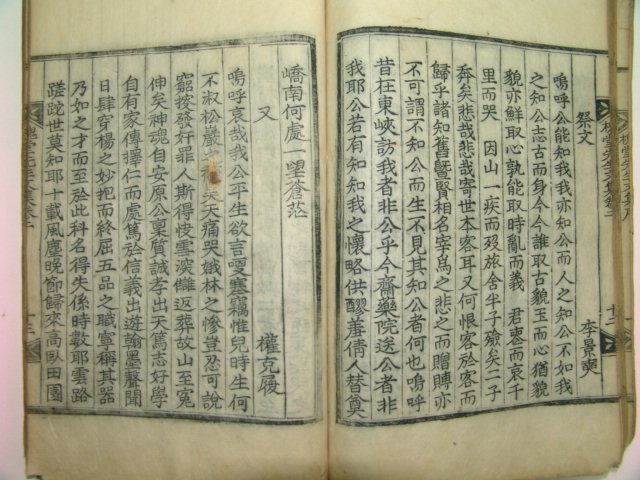 祭文
李景奭
嗚呼公能知我我亦知公而人之知公不如我
之知公志古而身今今誰取古貌玉而心猶鶴
貌亦鮮取心孰能取時亂而義君喪而哀千
里而哭因山一疾而歿旅舍半子殮矣二子
奔矣悲哉悲哉寄世本客耳又何恨客於客而
歸乎諸知舊曁賢相名宰爲之悲而賻賵亦
不可謂不知公而生不見其知公者何也嗚呼
昔在東峽訪我者非公乎今齋藥院送公者非
我耶公若有知知我之懷略供醪羞倩人替奠
嶠南何處一望蒼茫
又
權克履
嗚呼哀哉我公平生欲言哽塞竊惟兒時生何
不淑松巖 天痛哭娥林之慘豈忍可說
窮搜發好罪人斯得悛雪滨讎返葬故山至寃
伸矣神魂自安原公稟質誠孝出天篤志好學
自有家傳擇仁而處篤於信義出遊翰墨聲聞
日肆穿楊之妙把而終屈五品之職寧稱其器
乃如之才而至於此科名得失係時數耶雲路
蹉跎世莫知耶十載風塵晩節歸來高臥田園